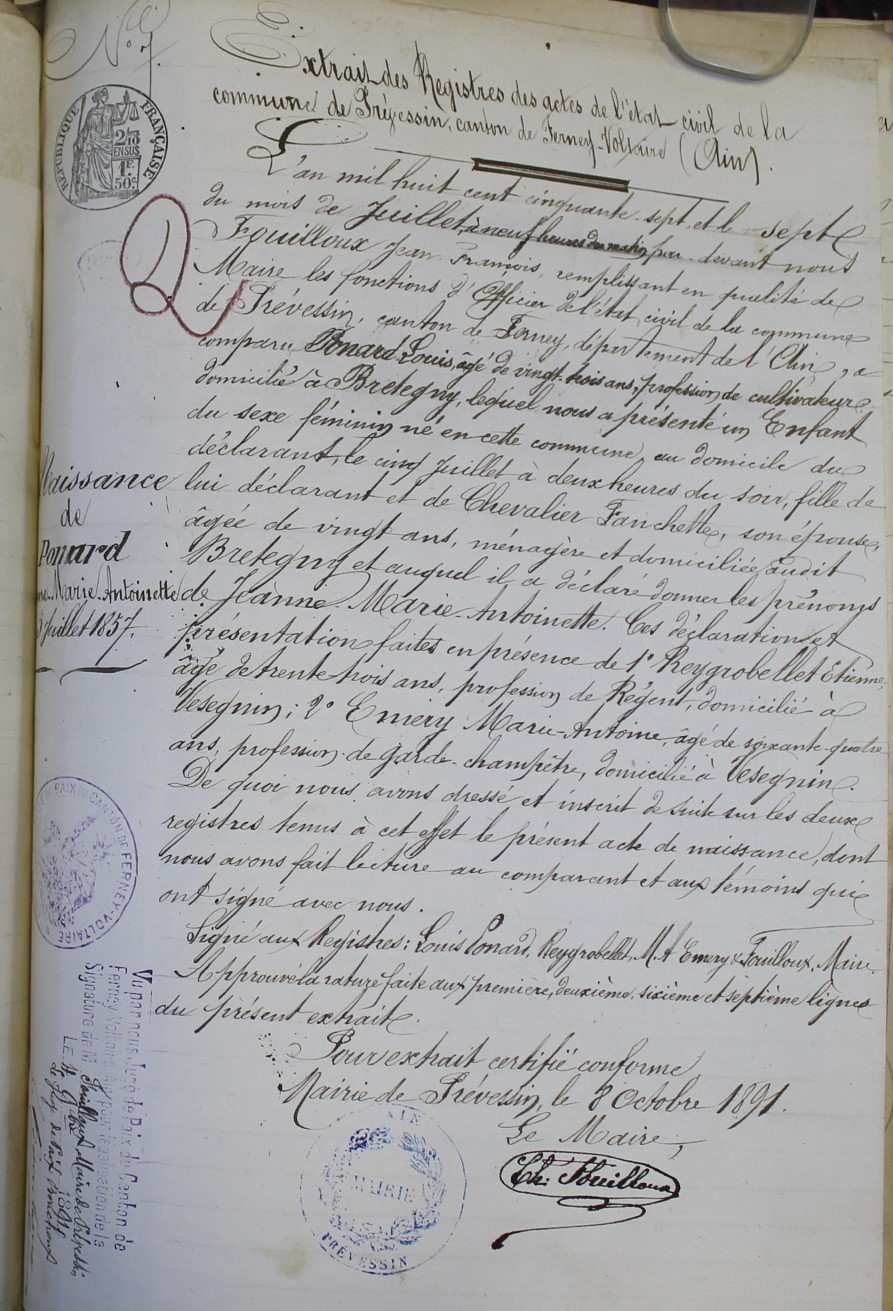 Extrait des Registres des actes de l'état civil de la
commune de Prévessin, canton de Ferney-Voltaire (Ain).
RÉPUBLIQUE FRANÇAISE
2/10
EN SUS
1F
50c
L'an mil huit cent cinquante-sept et le sept
du mois de Juillet à neuf heures du matin par-devant nous
Fouilloux Jean François, remplissant en qualité de
Maire les fonctions d'Officier de l'état civil de la commune
de Prévessin, canton de Ferney, département de l'Ain, a
comparu Ponard Louis, âgé de vingt-trois ans, profession de cultivateur
domicilié à Bretegny, lequel nous a présenté un Enfant
du sexe féminin né en cette commune, au domicile du
déclarant, le cinq Juillet à deux heures du soir, fille de
lui déclarant et de Chevalier Fanchette, son épouse,
âgée de vingt ans, ménagère et domiciliée audit
Bretegny et auquel il a déclaré donner les prénoms
de Jeanne-Marie-Antoinette. Ces déclaration et
présentation faites en présence de 1° Reygrobellet Etienne,
âgé de trente-trois ans, profession de Régent, domicilié à
Vesegnin; 2° Emery Marie-Antoine, âgé de soixante-quatre
ans, profession de garde-champêtre, domicilié à Vesegnin.
De quoi nous avons dressé et inscrit de suite sur les deux
registres tenus à cet effet le présent acte de naissance, dont
nous avons fait lecture au comparant et aux témoins qui
ont signé avec nous.
Signé aux Registres: Louis Ponard, Reygrobellet, M. A Emery & Fouilloux, Maire.
Approuvé la rature faite aux première, deuxième, sixième et septième lignes
du présent extrait.
Pour extrait certifié conforme
Mairie de Prévessin, le 8 Octobre 1891.
Le Maire,
Ch: Fouilloux
MAIRIE
PRÉVESSIN
Naissance
de
Ponard
Marie-Antoinette
Juillet 1857.
PAIX DU CANTON DE FERNEY-VOLTAIRE
Vu par nous, Juge de Paix du Canton de
Ferney-Voltaire pour légalisation de la
Signature de M. Fouilloux Maire de Prévessin
LE 1891
Le Juge de Paix